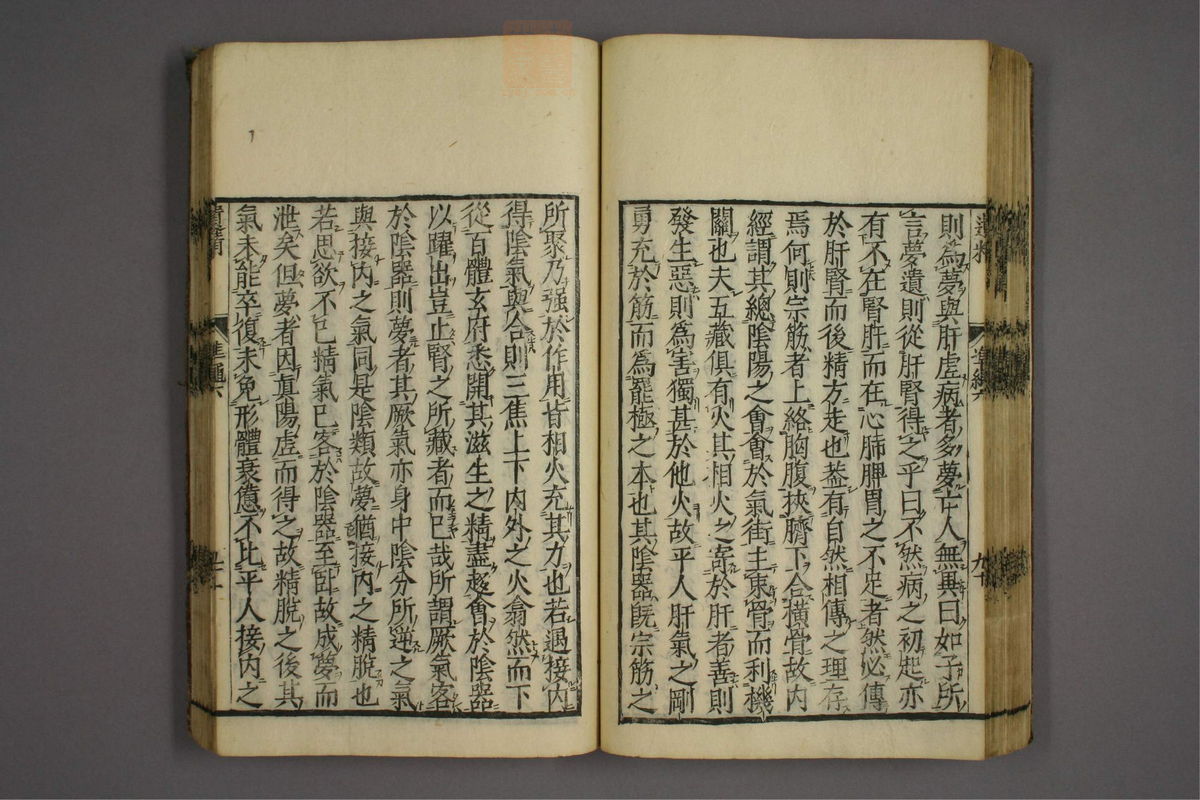 則為夢與肝虛病者多夢亡人無異曰如子所
言夢遺則從肝腎得之乎曰不然病之初起亦
有不在腎肝而在心肺脾胃之不足者然必傳
於肝腎而後精方走也蓋有自然相傳之理存
焉何則宗筋者上絡胸腹挾臍下合橫骨故內
經謂其總陰陽之會會於氣街主束骨而利機
關也夫五藏俱有火其相火之寄於肝者善則
發生惡則為害獨甚於他火故平人肝氣之剛
勇充於筋而為罷極之本也其陰器既宗筋之
所聚乃强於作用皆相火充其力也若遇接內
得陰氣與合則三焦上下內外之火翕然而下
從百體玄府悉開其滋生之精盡趨會於陰器
以躍出豈止腎之所藏者而已哉所謂厥氣客
於陰器則夢者其厥氣亦身中陰分所逆之氣
與接內之氣同是陰類故夢猶接內之精脫也
若思欲不已精氣已客於陰器至臥故成夢而
泄矣但夢者因真陽虛而得之故精脫之後其
氣未能卒復未免形體衰憊不比平人接內之